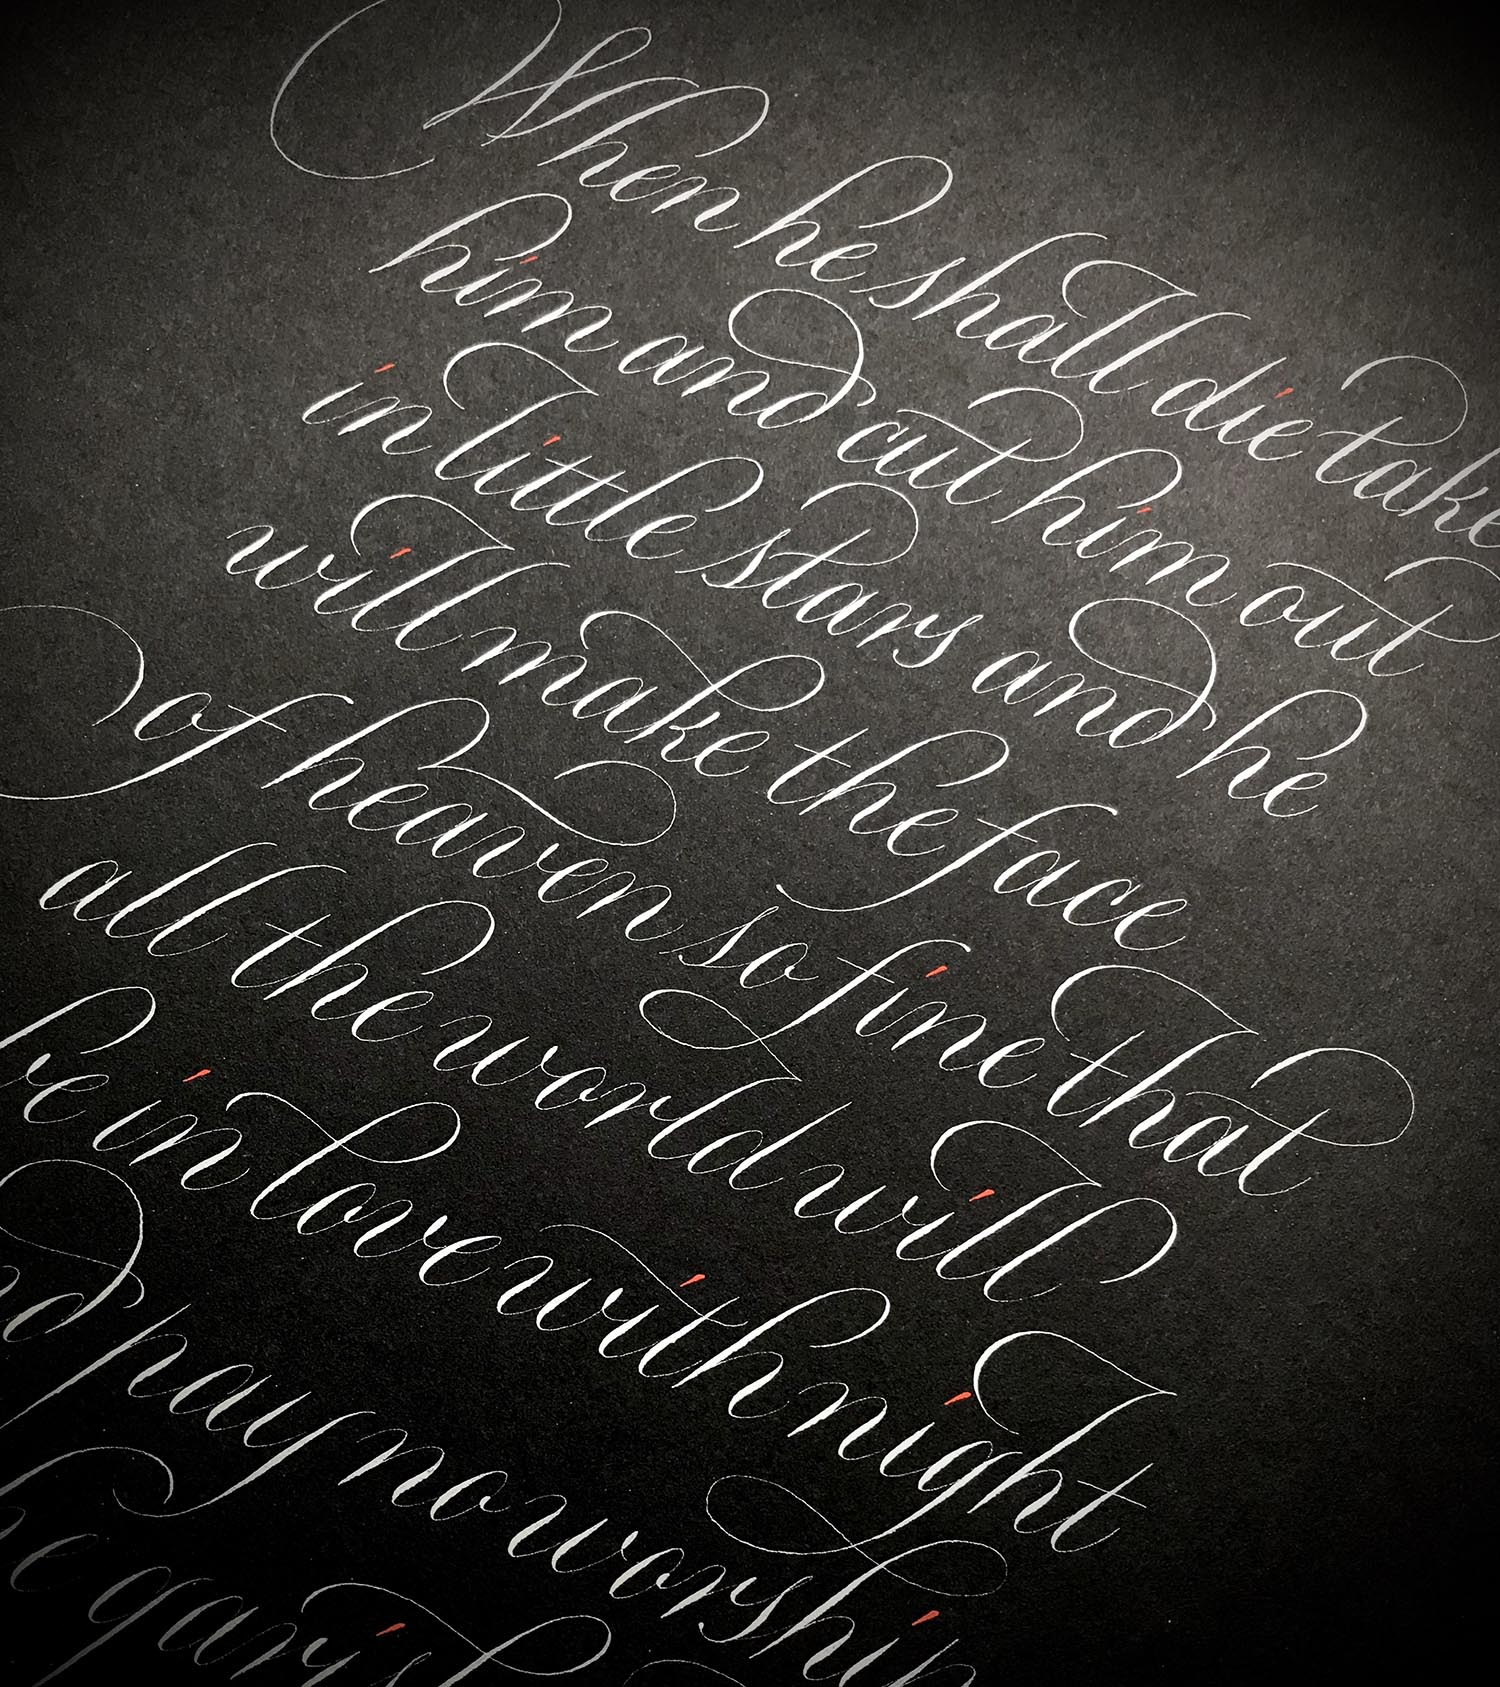 When he shall die take
him and cut him out
in little stars and he
will make the face
of heaven so fine that
all the world will
be in love with night
and pay no worship
garish